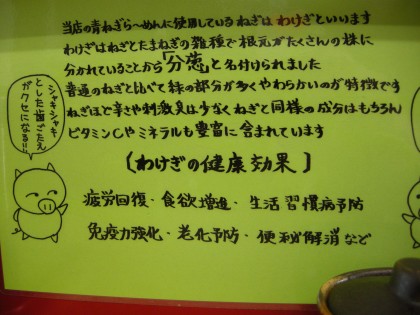 当店の青ねぎら〜めんに使用しているねぎは わけぎといいます
わけぎはねぎとたまねぎの雑種で根元がたくさんの株に
分かれていることから「分葱」と名付けられました
普通のねぎと比べて緑の部分が多くやわらかいのが特徴です
ねぎほど辛さや刺激臭は少なくねぎと同様の成分はもちろん
ビタミンCやミネラルも豊富に含まれています
シャキシャキ
とした歯ごたえ
がクセになる!!
〔わけぎの健康効果〕
疲労回復・食欲増進・生活習慣病予防
免疫力強化・老化予防・便秘解消など